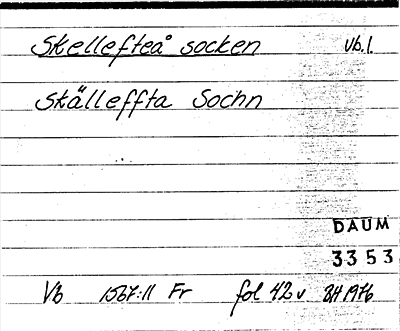 Skellefteå socken vb.l.
Skälleffta Sochn
DAUM
3353
Vb 1567:11 Fr fol 42 v BH 1976